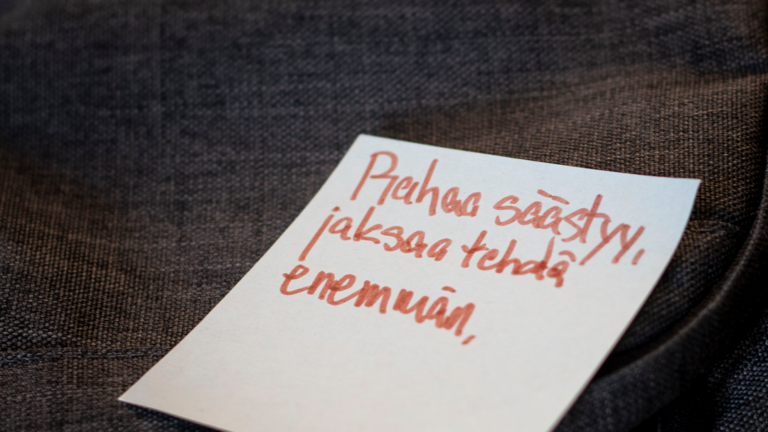 Rahaa säästyy,
jaksaa tehdä
enemmän,